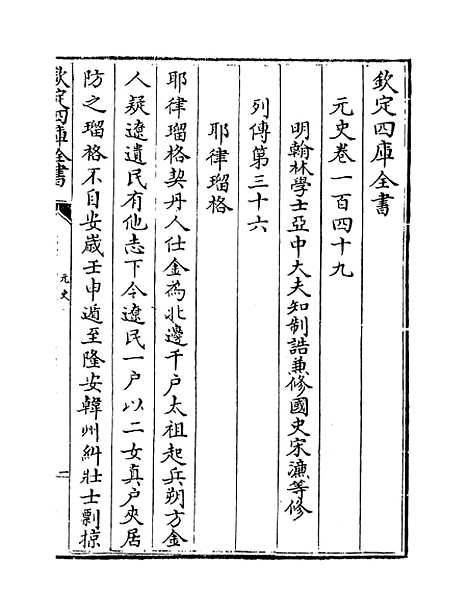 欽定四庫全書
元史卷一百四十九
明翰林學士亞中大夫知制誥兼修國史宋濂等修
列傳第三十六
耶律瑠格
耶律瑠格契丹人仕金為北邊千户太祖起兵朔方金
人疑遼遺民有他志下令遼民一户以二女真户夾居
防之瑠格不自安歲壬申遁至隆安韓州糾壯士剽掠
欽定四庫全書
元史